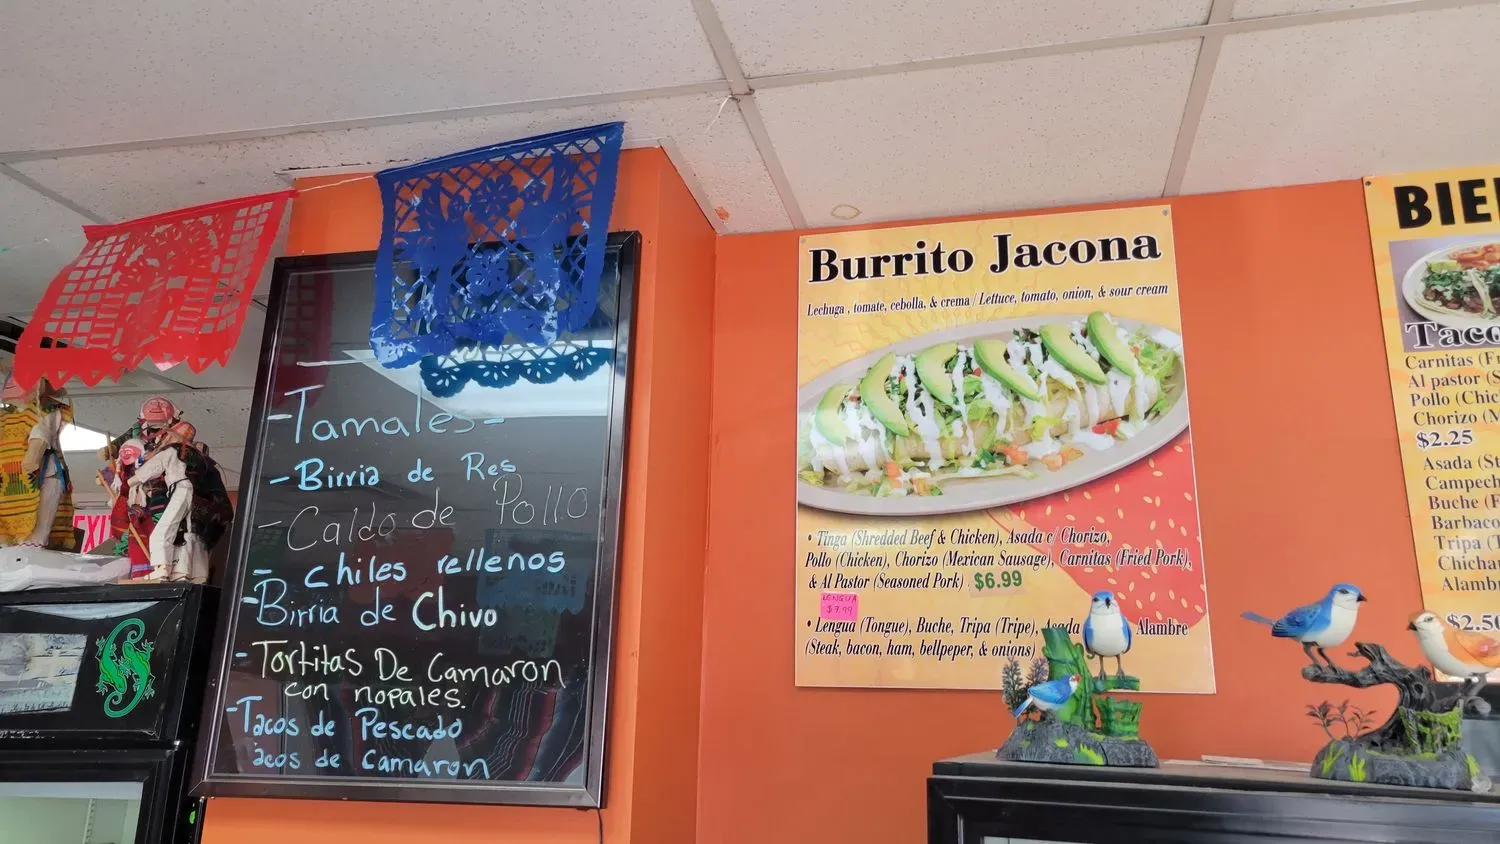 -Tamales-
- Birria de Res
- Caldo de Pollo
- chiles rellenos
-Birria de Chivo
- Tortitas De Camaron
con nopales.
-Tacos de Pescado
acos de Camaron
EXI
Burrito Jacona
Lechuga , tomate, cebolla, & crema / Lettuce, tomato, onion, & sour cream
• Tinga (Shredded Beef & Chicken), Asada c/ Chorizo,
Pollo (Chicken), Chorizo (Mexican Sausage), Carnitas (Fried Pork),
& Al Pastor (Seasoned Pork) $6.99
LENGUA
$7.99
• Lengua (Tongue), Buche, Tripa (Tripe), Asada Alambre
(Steak, bacon, ham, bellpeper, & onions)
BIE
Taco
Carnitas (F
Al pastor (S
Pollo (Chic
Chorizo (M
$2.25
Asada (St
Campech
Buche (F
Barbaco
Tripa (T
Chicha
Alambr
$2.50